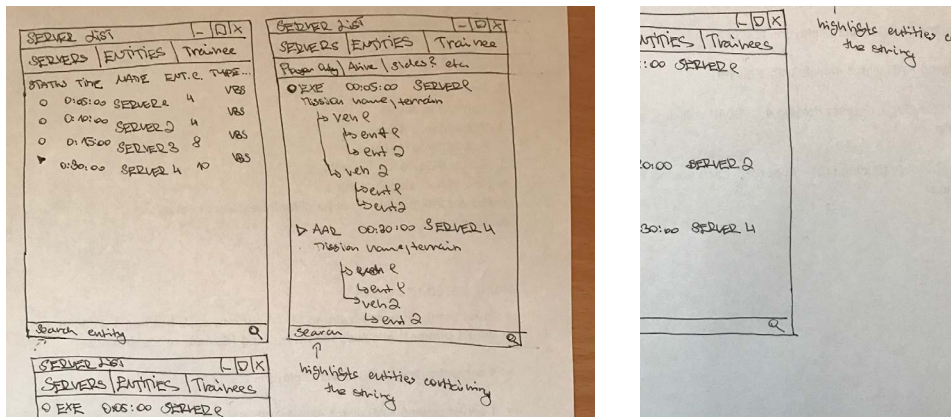 SERVER LIST
SERVERS | ENTITIES | Trainee
STATUS TIME NAME ENT.C. TYPE...
0:05:00 SERVER 1 4 VBS
0:10:00 SERVER 2 4 VBS
0:15:00 SERVER 3 8 VBS
0:30:00 SERVER 4 10 VBS
Search entity
SERVER LIST
SERVERS | ENTITIES | Trainee
Player Only | Alive | sides? etc.
EXE 00:05:00 SERVER 1
Mission name, terrain
veh 1
ent 1
ent 2
veh 2
ent 1
ent 2
AAR 00:30:00 SERVER 4
Mission name, terrain
veh 1
ent 1
veh 2
ent 2
search
highlights entities containing
the string
SERVER LIST
SERVERS | ENTITIES | Trainees
EXE 0:05:00 SERVER 1
NTITIES | Trainees
:00 SERVER 1
0:00 SERVER 2
30:00 SERVER 4
highlights entities c
the string